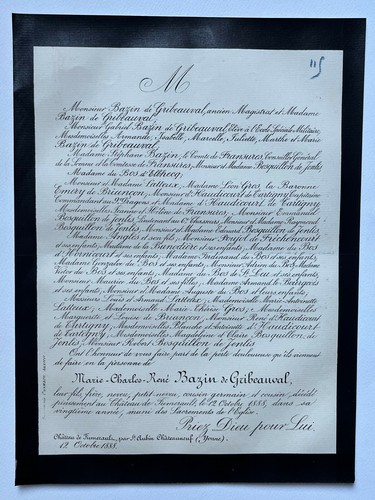 115
M
Monsieur Bazin de Gribeauval, ancien Magistrat et Madame
Bazin de Gribeauval,
Monsieur Gabriel Bazin de Gribeauval Elève à l'Ecole Spéciale Militaire,
Mesdemoiselles Armande, Isabelle, Marcelle, Juliette, Marthe et Marie
Bazin de Gribeauval,
Madame Stéphane Bazin, le Comte de Fransures, Conseiller Général
de la Somme et la Comtesse de Fransures, Monsieur et Madame Bosquillon de Jenlis
Madame du Bos d'Elbhecq,
Monsieur et Madame Latteux, Madame Léon Gros, la Baronne
Emery de Briançon, Monsieur d'Haudicourt de Tartigny Capitaine
Commandant au Dragons et Madame d'Haudicourt de Tartigny
Mesdemoiselles Jeanne et Hélène de Fransures, Monsieur Emmanuel
Bosquillon de Jenlis, Lieutenant au Chasseurs, Monsieur et Madame Raymond
Bosquillon de Jenlis Monsieur et Madame Edouard Bosquillon de Jenlis,
Madame Anglès et son fils, Monsieur Pujol de Fréchencourt
et ses enfants, Madame de la Bunodière et ses enfants, Madame du Bos
d'Hornicourt et ses enfants, Madame Ferdinand du Bos et ses enfants,
Madame Gonzalve du Bos et ses enfants, Monsieur Adrien du Bos, Madame
Victor du Bos et ses enfants, Madame du Bos de St Leu et ses enfants,
Monsieur Maurice du Bos et ses filles, Madame Armand le Bourgeois
et ses enfants, Monsieur et Madame Auguste du Bos et leurs enfants,
Messieurs Louis et Armand Latteux; Mademoiselle Marie-Antoinette
Latteux; Mademoiselle Marie Thérèse Gros; Mesdemoiselles
Marguerite et Louise de Briançon, Monsieur René d'Haudicourt
de Tartigny, Mesdemoiselles Blanche et Antoinette d'Haudicourt
de Tartigny, Mesdemoiselles Magdeleine et Claire Bosquillon de
Jenlis, Monsieur Robert Bosquillon de Jenlis
Ont l'honneur de vous faire part de la perte douloureuse qu'ils viennent
de faire en la personne de
Marie-Charles-René Bazin de Gribeauval,
leur fils, frère, neveu, petit-neveu, cousin germain et cousin, décédé
pieusement au Château de Fumerault, le 12 Octobre 1888, dans sa
vingtième année, muni des Sacrements de l'Eglise.
Priez Dieu pour Lui
Château de Fumerault, par St Aubin Châteauneuf (Yonne).
12 Octobre 1888.